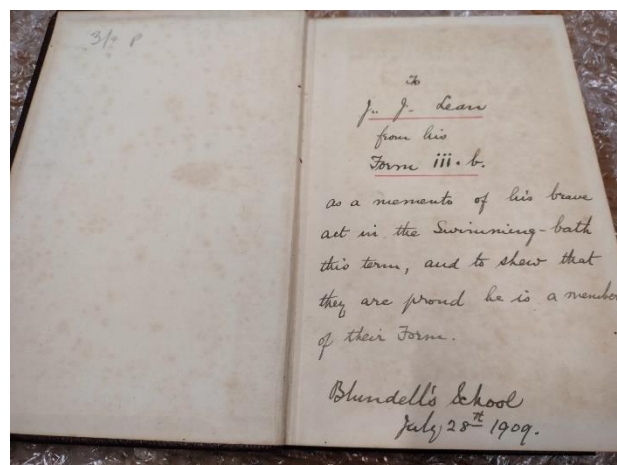 3/9 P
To
J. J. Lean
from his
Form iii. b.
as a memento of his brave
act in the Swimming-bath
this term, and to shew that
they are proud he is a member
of their Form.
Blundell's School
July 28th 1909.